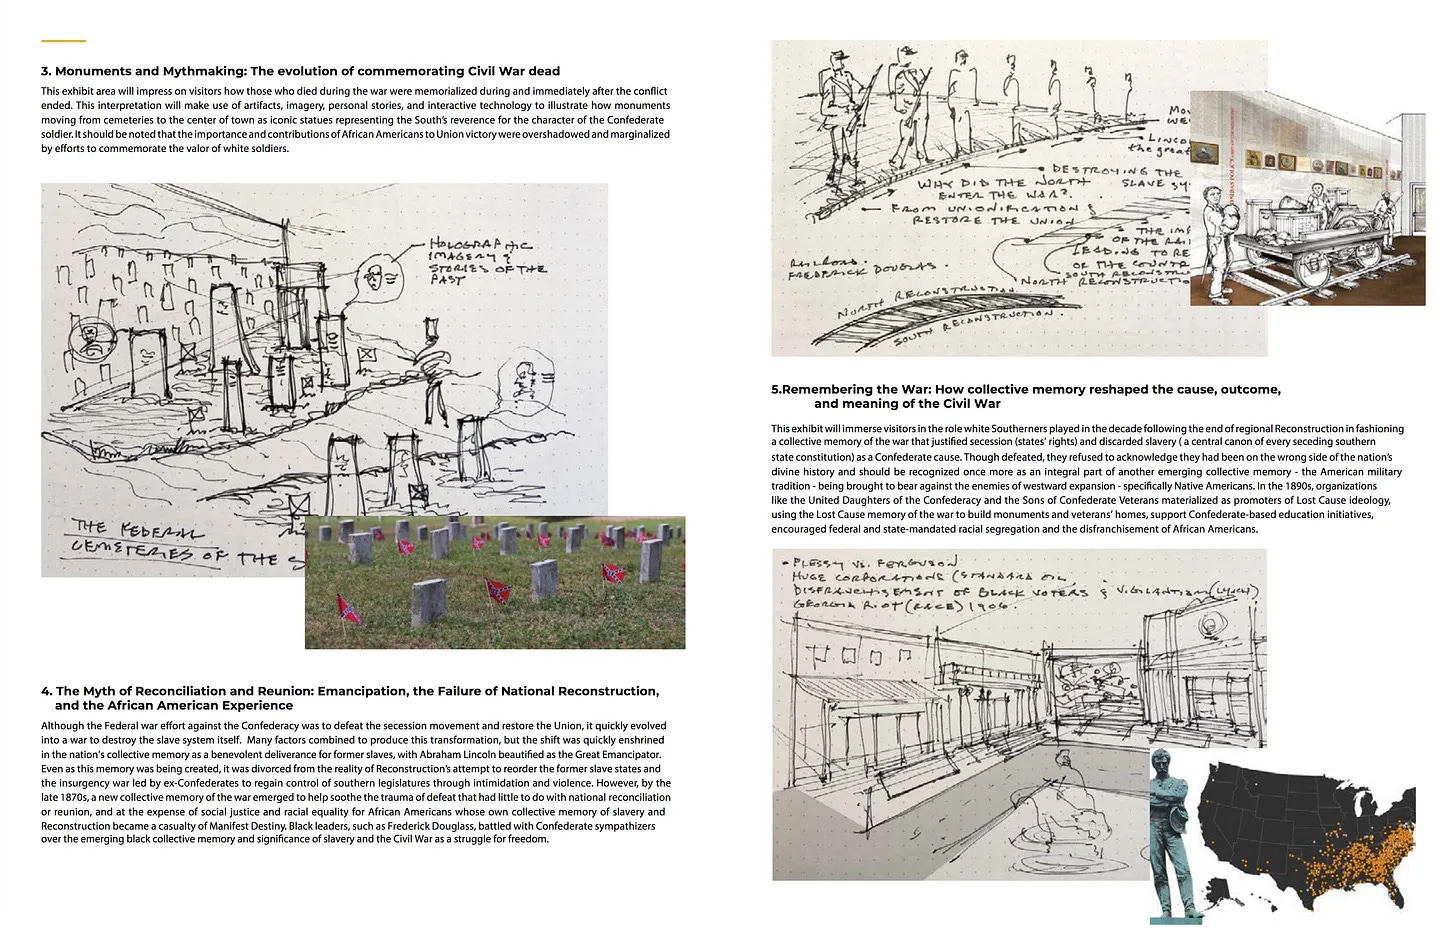 3. Monuments and Mythmaking: The evolution of commemorating Civil War dead
This exhibit area will impress on visitors how those who died during the war were memorialized during and immediately after the conflict
ended. This interpretation will make use of artifacts, imagery, personal stories, and interactive technology to illustrate how monuments
moving from cemeteries to the center of town as iconic statues representing the South's reverence for the character of the Confederate
soldier. It should be noted that the importance and contributions of African Americans to Union victory were overshadowed and marginalized
by efforts to commemorate the valor of white soldiers.
HOLOGRAPHIC
IMAGERY &
STORIES OF THE
PAST
THE FEDERAL
CEMETERIES OF THE S
4. The Myth of Reconciliation and Reunion: Emancipation, the Failure of National Reconstruction,
and the African American Experience
Although the Federal war effort against the Confederacy was to defeat the secession movement and restore the Union, it quickly evolved
into a war to destroy the slave system itself. Many factors combined to produce this transformation, but the shift was quickly enshrined
in the nation's collective memory as a benevolent deliverance for former slaves, with Abraham Lincoln beautified as the Great Emancipator.
Even as this memory was being created, it was divorced from the reality of Reconstruction's attempt to reorder the former slave states and
the insurgency war led by ex-Confederates to regain control of southern legislatures through intimidation and violence. However, by the
late 1870s, a new collective memory of the war emerged to help soothe the trauma of defeat that had little to do with national reconciliation
or reunion, and at the expense of social justice and racial equality for African Americans whose own collective memory of slavery and
Reconstruction became a casualty of Manifest Destiny. Black leaders, such as Frederick Douglass, battled with Confederate sympathizers
over the emerging black collective memory and significance of slavery and the Civil War as a struggle for freedom.
MO
WE
LINCO
the great
DESTROYING THE
SLAVE SY
WHY DID THE NORTH
ENTER THE WAR?
FROM UNIONIFICATION &
RESTORE THE UNION
THE IM
OF THE RAI
LEADING TO RE
OF THE COUNTR
SOUTH RECONSTR
NORTH RECONSTRUCTIO
RAILROAD.
FREDERICK DOUGLAS.
NORTH RECONSTRUCTION
SOUTH RECONSTRUCTION.
5.Remembering the War: How collective memory reshaped the cause, outcome,
and meaning of the Civil War
This exhibit will immerse visitors in the role white Southerners played in the decade following the end of regional Reconstruction in fashioning
a collective memory of the war that justified secession (states' rights) and discarded slavery ( a central canon of every seceding southern
state constitution) as a Confederate cause. Though defeated, they refused to acknowledge they had been on the wrong side of the nation's
divine history and should be recognized once more as an integral part of another emerging collective memory - the American military
tradition - being brought to bear against the enemies of westward expansion - specifically Native Americans. In the 1890s, organizations
like the United Daughters of the Confederacy and the Sons of Confederate Veterans materialized as promoters of Lost Cause ideology,
using the Lost Cause memory of the war to build monuments and veterans' homes, support Confederate-based education initiatives,
encouraged federal and state-mandated racial segregation and the disfranchisement of African Americans.
PLESSY VS. FERGUSON
HUGE CORPORATIONS (STANDARD OIL,
DISFRANCHISEMENT OF BLACK VOTERS & VIGILANTISM (LYNCH)
GEORGIA RIOT (RACE) 1906.